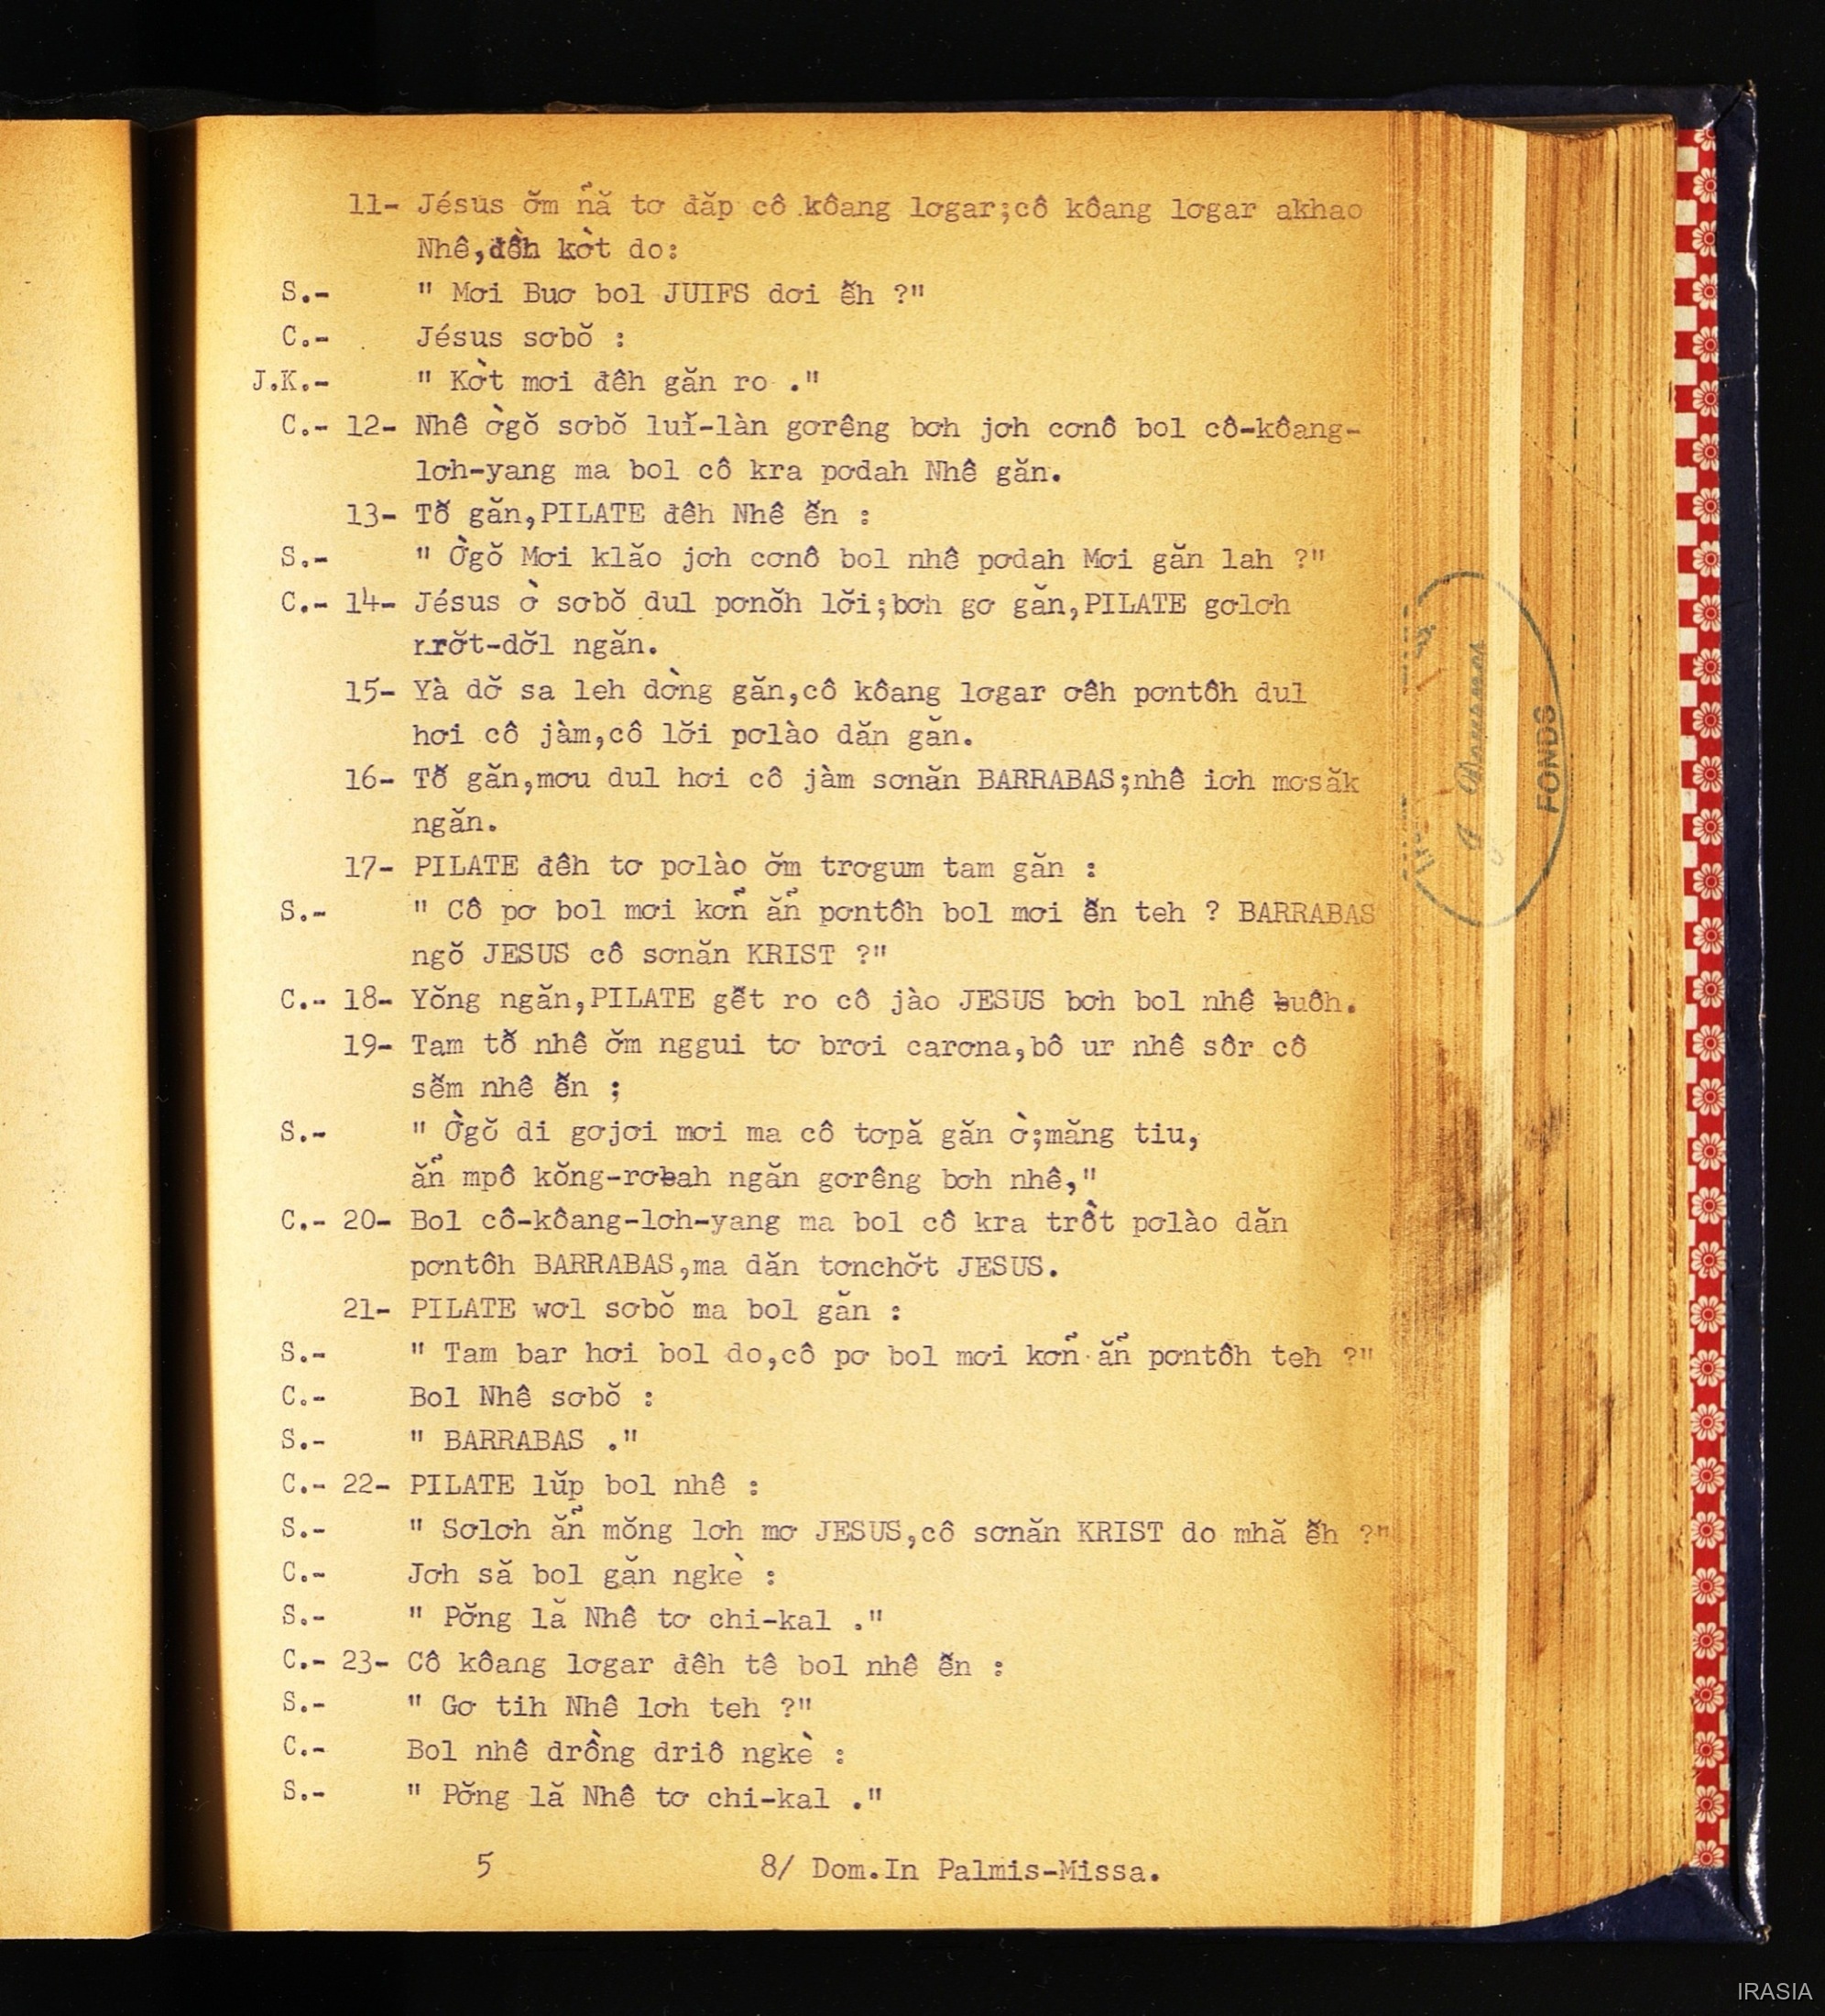 11- Jésus ơ̆m n̉ă tơ đăp cô kôang lơgar;cô kôang lơgar akhao
Nhê,đêh kờt do:
S.- " Mơi Buơ bol JUIFS dơi ê̆h ?"
C.- Jésus sơbŏ :
J.K.- " Kờt mơi đêh găn ro ."
C.- 12- Nhê ờgŏ sơbŏ luĭ-làn gơrêng bơh jơh cơnô bol cô-kôang-
lơh-yang ma bol cô kra pơdah Nhê găn.
13- Tô̆ găn,PILATE đêh Nhê ê̆n :
S.- " Ờgŏ Mơi klăo jơh cơnô bol nhê pơdah Mơi găn lah ?"
C.- 14- Jésus ờ sơbŏ dul pơnŏh lơ̆i;bơh gơ găn,PILATE gơlơh
rrơ̆t-dơ̆l ngăn.
15- Yà dơ̆ sa leh dờng găn,cô kôang lơgar ơêh pơntôh dul
hơi cô jàm,cô lơ̆i pơlào dăn găn.
16- Tô̆ găn,mơu dul hơi cô jàm sơnăn BARRABAS;nhê iơh mơsăk
ngăn.
17- PILATE đêh tơ pơlào ơ̆m trơgum tam găn :
S.- " Cô pơ bol mơi kơn̉ ăn̉ pơntôh bol mơi ê̆n teh ? BARRABAS
ngŏ JESUS cô sơnăn KRIST ?"
C.- 18- Yŏng ngăn,PILATE gê̆t ro cô jào JESUS bơh bol nhê ƀuôh.
19- Tam tô̆ nhê ơ̆m nggui tơ brơi carơna,bô ur nhê sôr cô
sê̆m nhê ê̆n ;
S.- " Ờgŏ di gơjơi mơi ma cô tơpă găn ờ;măng tiu,
ăn̉ mpô kŏng-rơƀah ngăn gơrêng bơh nhê,"
C.- 20- Bol cô-kôang-lơh-yang ma bol cô kra trồt pơlào dăn
pơntôh BARRABAS,ma dăn tơnchơ̆t JESUS.
21- PILATE wơl sơbŏ ma bol găn :
S.- " Tam bar hơi bol do,cô pơ bol mơi kơn̉ ăn̉ pơntôh teh ?"
C.- Bol Nhê sơbŏ :
S.- " BARRABAS ."
C.- 22- PILATE lŭp bol nhê :
S.- " Sơlơh ăn̉ mŏng lơh mơ JESUS,cô sơnăn KRIST do mhă ê̆h ?"
C.- Jơh să bol găn ngkè :
S.- " Pơ̆ng lă Nhê tơ chi-kal ."
C.- 23- Cô kôang lơgar đêh tê bol nhê ê̆n :
S.- " Gơ tih Nhê lơh teh ?"
C.- Bol nhê drồng driô ngkè :
S.- " Pơ̆ng lă Nhê tơ chi-kal ."
5 8/ Dom.In Palmis-Missa.
FONDS
IRASIA